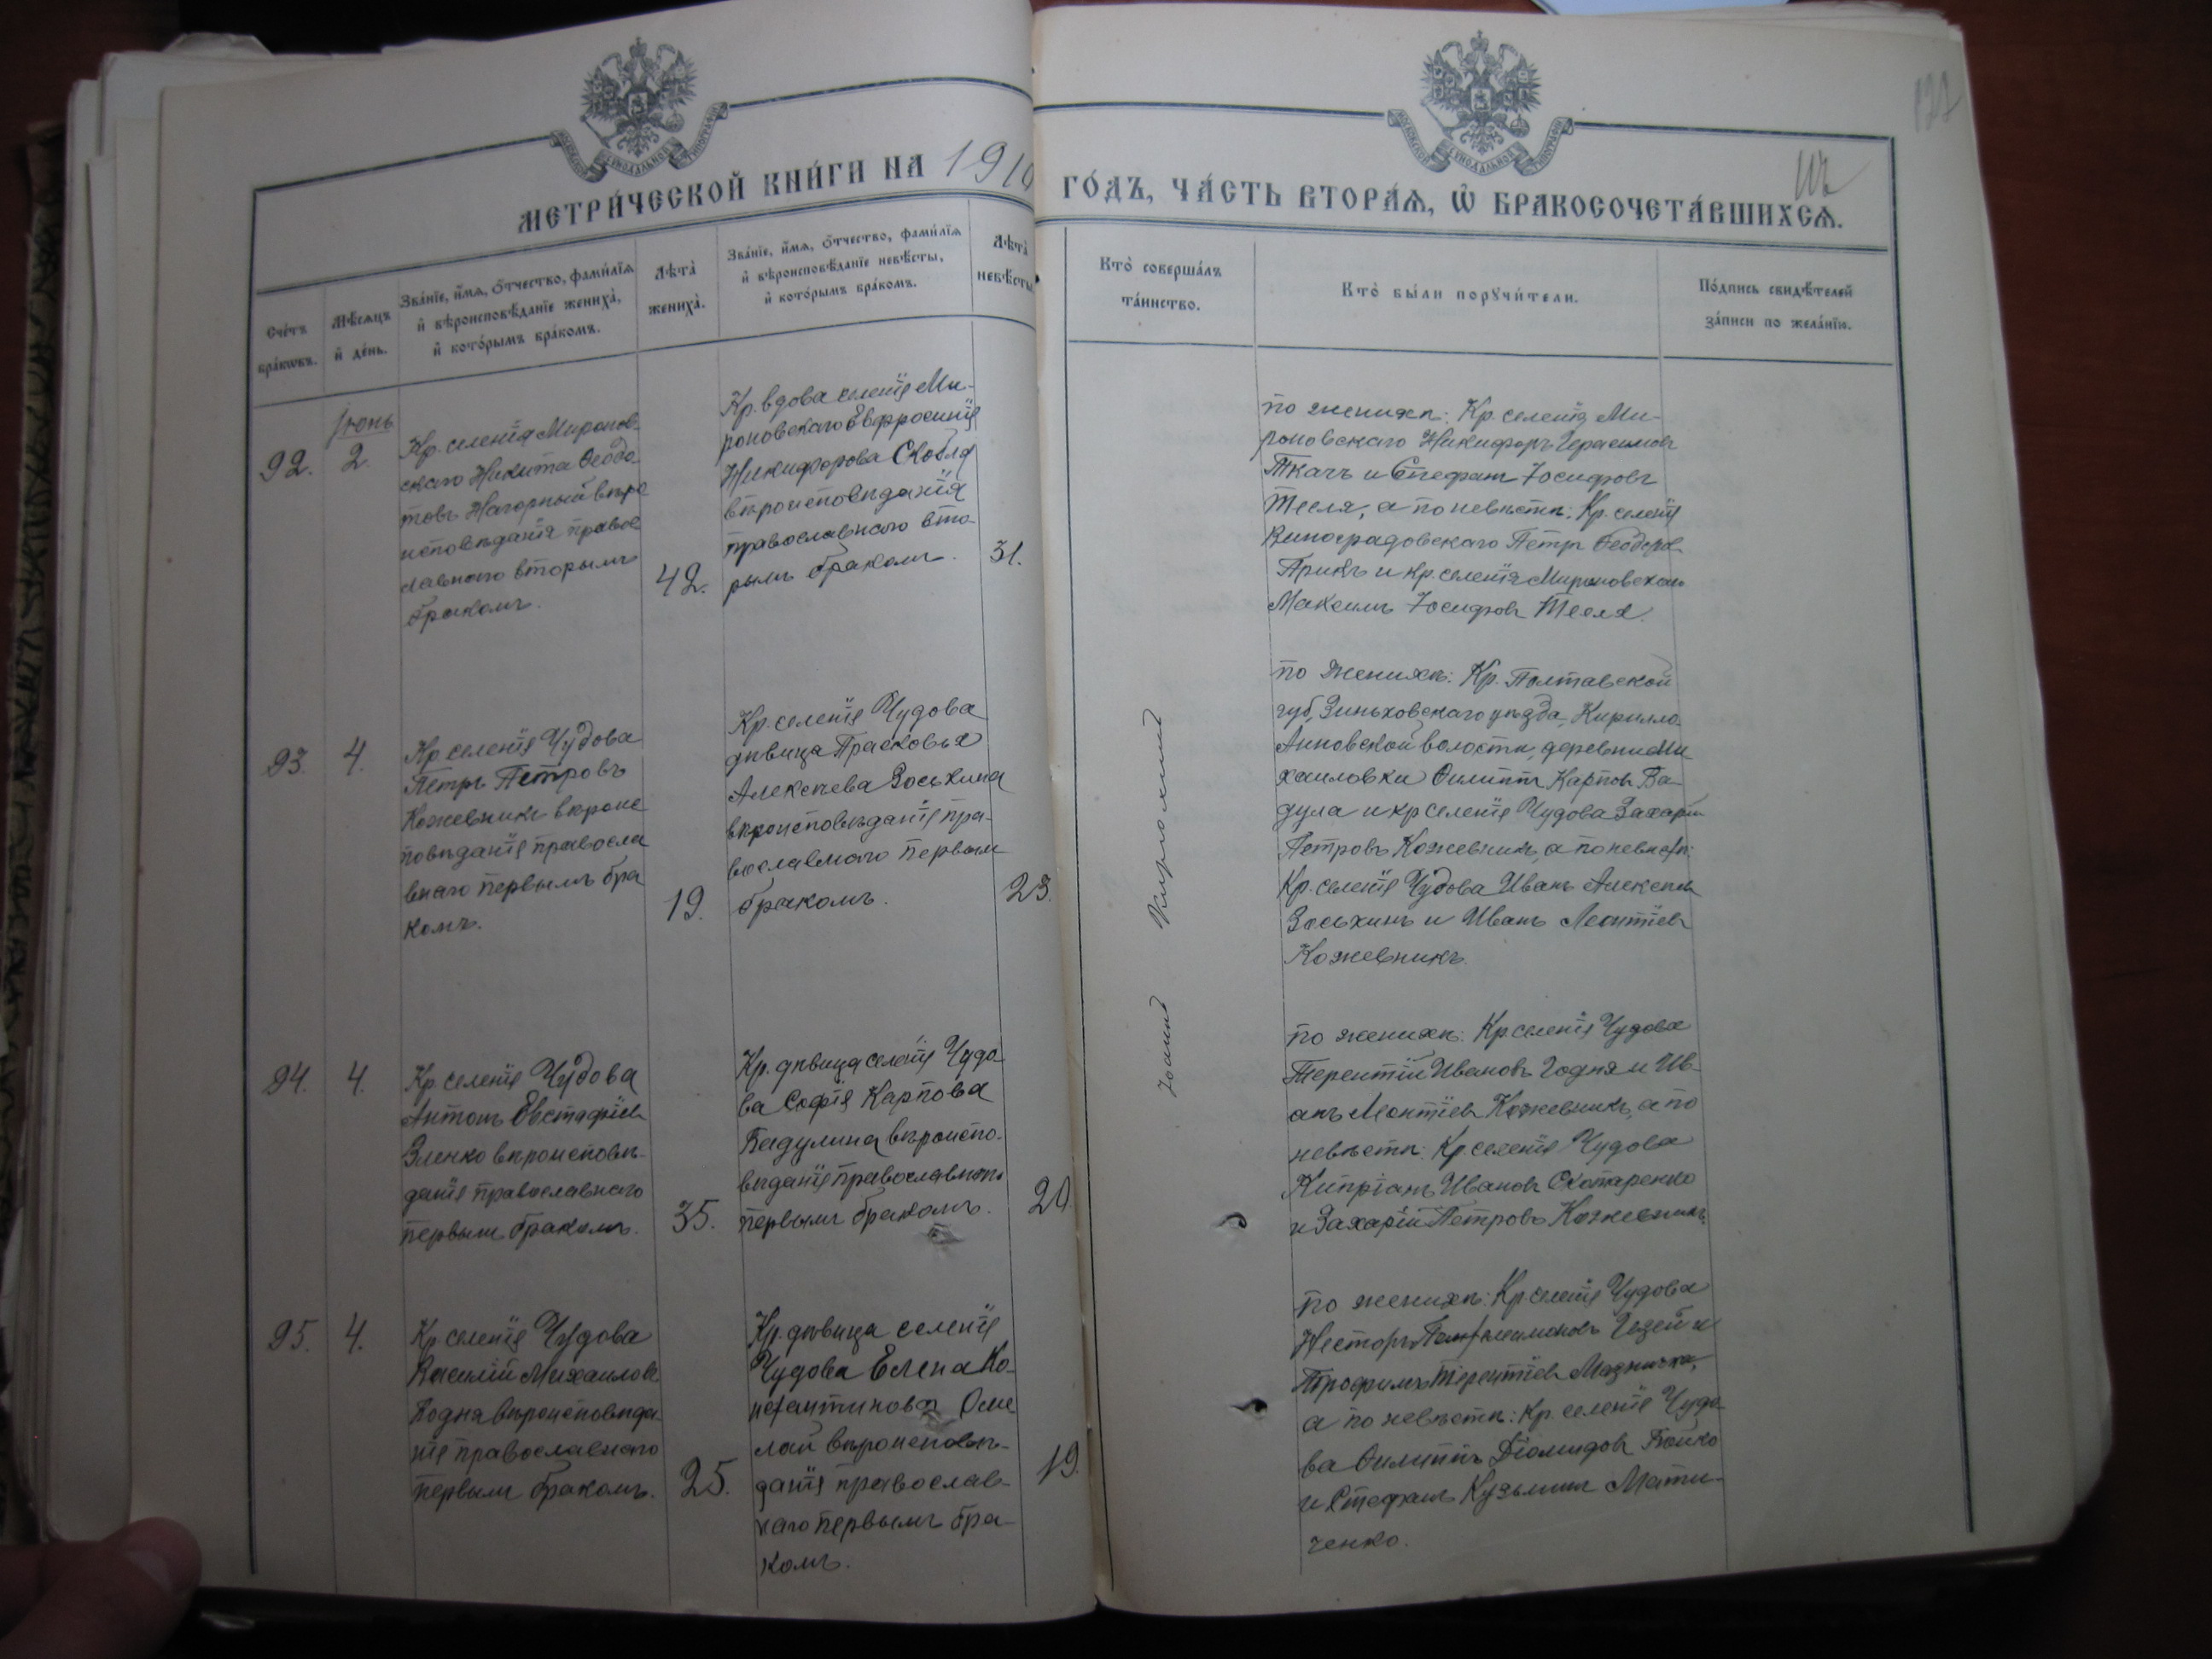 МЕТРИ́ЧЕСКОЙ КНИ́ГИ НА 1910
ГО́ДЪ, ЧА́СТЬ ВТОРА́Ѧ, Ѽ БРАКОСОЧЕТА́ВШИХСѦ.
Сче́тъ бра́кѡвъ.
Мѣ́сѧцъ и҆ де́нь.
Зва́нїе, и҆́мѧ, ѻ҆́тчество, фами́лїѧ
и҆ вѣроисповѣ́данїе жениха̀,
и҆ кото́рымъ бра́комъ.
Лѣ́та жениха̀.
Зва́нїе, и҆́мѧ, ѻ҆́тчество, фами́лїѧ
и҆ вѣроисповѣ́данїе невѣ́сты,
и҆ кото́рымъ бра́комъ.
Лѣ́та невѣ́сты.
Кто̀ соверша́лъ
та́инство.
Кто̀ бы́ли порꙋчи́тели.
По́дпись свидѣ́телей
за́писи по жела́нїю.
Іюнь
92.
2.
Кр. селенія Миронов-
скаго Никита Ѳеодо-
товъ Нагорный вѣро
исповѣданія право
славнаго вторымъ
бракомъ.
42.
Кр. вдова селенія Ми-
роновскаго Евфросинія
Никифорова Скобля
вѣроисповѣданія
православнаго вто-
рымъ бракомъ.
31.
по женихѣ: Кр. селенія Ми-
роновскаго Никифоръ Герасимовъ
Ткачъ и Стефанъ Іосифовъ
Тесля, а по невѣстѣ: Кр. селенія
Виноградовскаго Петръ Ѳеодоров
и кр. селенія Мироновскаго
Максимъ Іосифовъ Тесля.
93.
4.
Кр. селенія Чудова
Петръ Петровъ
Кожевникъ вѣроис
повѣданія правосла
внаго первымъ бра
комъ.
19.
Кр. селенія Чудова
дѣвица Прасковья
Алексѣева Зоськина
вѣроисповѣданія пра-
вославнаго первым
бракомъ.
23.
по женихѣ: Кр. Полтавской
губ, Зиньковскаго уѣзда, Кирилло-
Анновской волости, деревни Ми-
хаиловки Филиппъ Карповъ Ба-
дула и кр селенія Чудова Захарій
Петровъ Кожевникъ, а по невѣстѣ:
Кр. селенія Чудова Иванъ Алексѣев
Зоськинъ и Иванъ Леонтіев
Кожевникъ.
94.
4.
Кр. селенія Чудова
Антонъ Евстафіев
Зленко вѣроисповѣ-
данія православнаго
первымъ бракомъ.
35.
Кр. дѣвица селенія Чудо-
ва Софія Карпова
Бадулина вѣроиспо-
вѣданія православнаго
первымъ бракомъ.
20.
по женихѣ: Кр. селенія Чудова
Терентій Ивановъ Годня и Ив-
анъ Леонтіев Кожевникъ, а по
невѣстѣ: Кр. селенія Чудова
Кипріанъ Иванов Скотаренко
и Захарій Петровъ Кожевникъ.
95.
4.
Кр. селенія Чудова
Василій Михаилов
Годня вѣроисповѣда-
нія православнаго
первымъ бракомъ.
25.
Кр. дѣвица селенія
Чудова Елена Ко-
нстантинова Оме
лай вѣроисповѣ-
данія православ-
наго первымъ бра-
комъ.
19.
по женихѣ: Кр селенія Чудова
Несторъ Пантелеимоновъ и
Трофимъ Терентіев
а по невѣстѣ: Кр. селенія Чудо-
ва Филиппъ Діомидов Бойко
и Стефанъ Кузьмин Мати-
ченко.
Іоаннъ